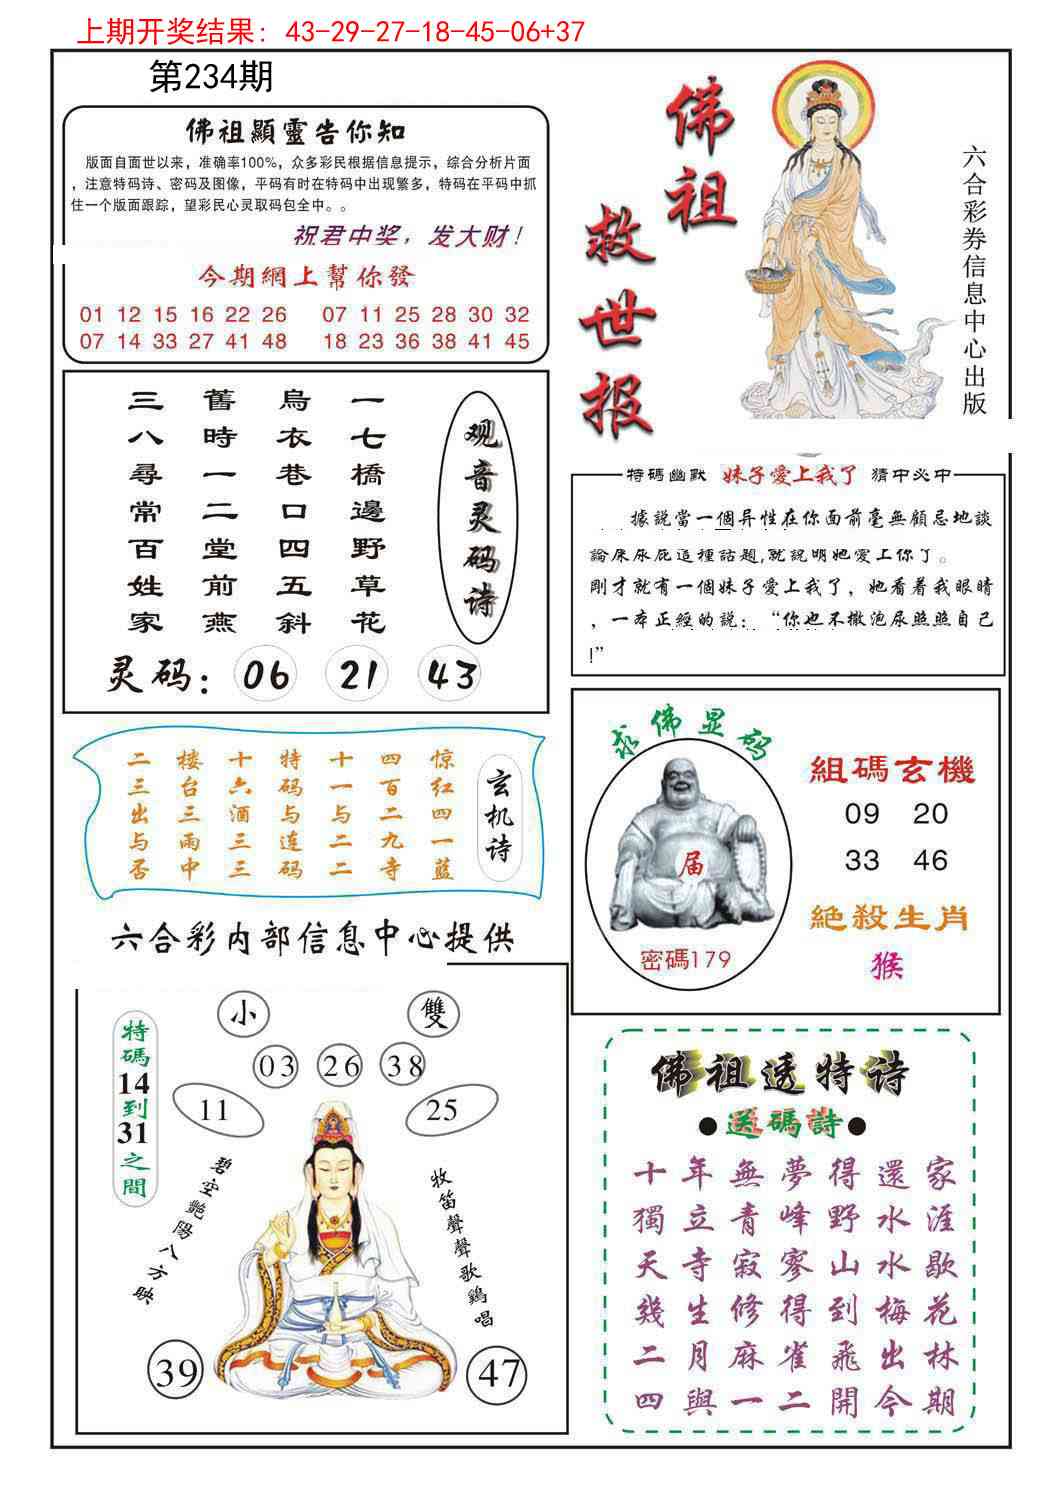 上期开奖结果：43-29-27-18-45-06+37
第234期
佛祖顯靈告你知
版面自面世以来，准确率100%，众多彩民根据信息提示，综合分析片面
，注意特码诗、密码及图像，平码有时在特码中出现繁多，特码在平码中抓
住一个版面跟踪，望彩民心灵取码包全中。。
祝君中奖，发大财！
今期網上幫你發
01 12 15 16 22 26 07 11 25 28 30 32
07 14 33 27 41 48 18 23 36 38 41 45
佛祖救世报
六合彩券信息中心出版
观音灵码诗
一七橋邊野草花
烏衣巷口四五斜
舊時一二堂前燕
三八尋常百姓家
灵码：06 21 43
特碼幽默 妹子愛上我了 猜中必中
據説當一個异性在你面前毫無顧忌地談
論床尿屁這種話題,就説明她愛上你了。
剛才就有一個妹子愛上我了，她看着我眼睛
，一本正經的説：“你也不撒泡尿照照自己
!”
玄机诗
惊红四一蓝
四百二九寺
十一与二二
特码与连码
十六酒三三
楼台三雨中
二三出与否
六合彩内部信息中心提供
求佛显码
届
密碼179
組碼玄機
09 20
33 46
絕殺生肖
猴
小 雙
03 26 38
11 25
特碼14到31之間
碧空艷陽八方映
牧笛聲聲歌鷄唱
39 47
佛祖透特诗
●送碼詩●
十年無夢得還家
獨立青峰野水涯
天寺寂寥山水歇
幾生修得到梅花
二月麻雀飛出林
四與一二開今期